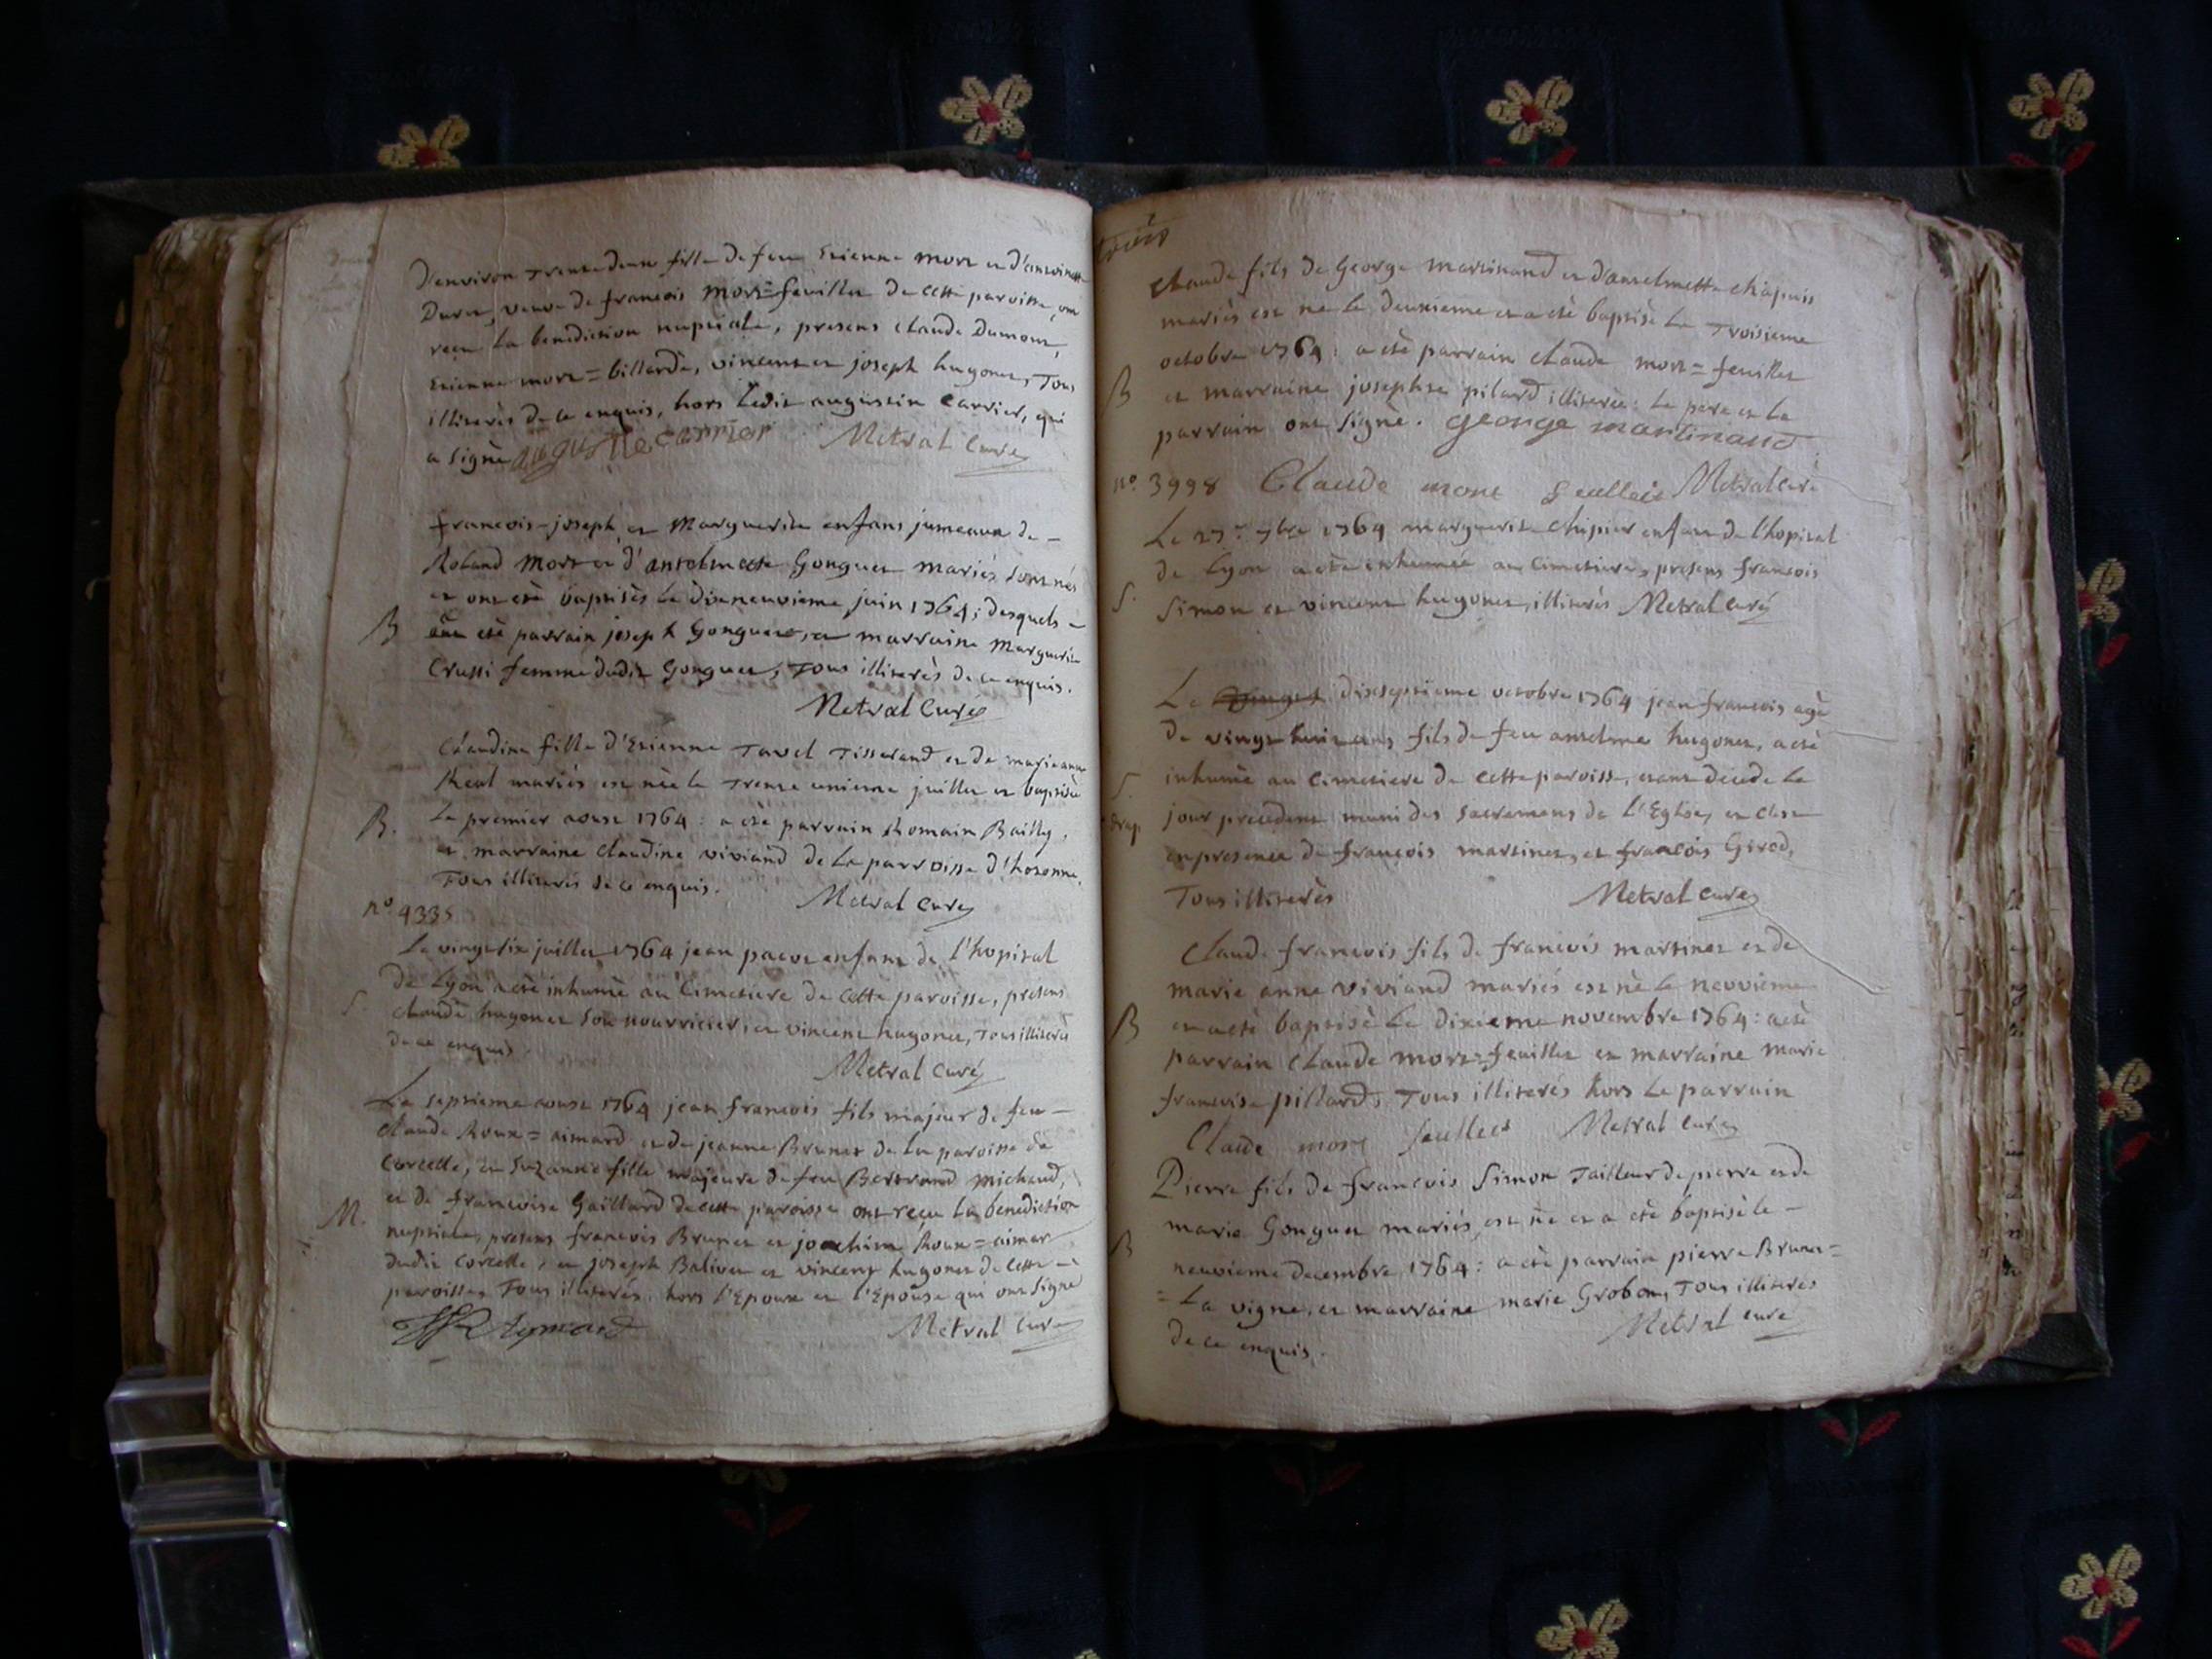 D'environ trente deux fille de feu Etienne mort et d'antoinette
Duret, veuve de françois mort=feuillet de cette paroisse, ont
reçu la benediction nuptiale, presens claude Dumont,
Etienne mort=billardè, vincent et joseph hugonet, Tous
illiterès de ce enquis, hors ledit augustin Carrier, qui
a signè Metral Curé
françois-joseph et Marguerite enfans jumeaux de -
Roland Mort et d'antelmette Gonguet mariés sont nés
et ont eté baptisès le dixneuvieme juin 1764; desquels -
ont eté parrain joseph Gonguet, et marraine Marguerite
B
Crussi femme dudit Gonguet, Tous illiterès de ce enquis.
Metral Curé
Claudine fille d'Etienne Tavel Tisserand et de marieanne
Réal mariés est née le Trente unieme juillet et baptisée
B. Le premier aoust 1764 : a eté parrain Romain Bailly,
et marraine claudine viviand de la parroisse d'
Tous illiterés de ce enquis. Metral Curé
n° 4335
Le vingtsix juillet 1764 jean pacot enfant de l'hopital
De Lyon a eté inhumé au Cimetiere de cette paroisse, presens
S. claude hugonet son nourricier, et vincent hugonet, Tous illiterès
de ce enquis. Metral Curé
Le septieme aoust 1764 jean françois fils majeur de feu -
claude Roux=aimard et de jeanne Brunet de la paroisse de
Corcelle, et Suzanne fille majeure de feu Bertrand michaud,
et de françoise Gaillard de cette paroisse ont reçu la benediction
M.
nuptiale, presens françois Brunet et joachim Roux=aimar
dudit Corcelle, et joseph Balivet et vincent hugonet de cette -
paroisse, Tous illiterés, hors l'Epoux et l'Epouse qui ont signé
Metral Curé
claude fils de George martinand et d'antelmette chapuis
mariés est né le deuxieme et a eté baptisé le Troisieme
octobre 1764; a eté parrain claude mort=feuillet
B et marraine josephte pilard illiterée: le pere et le
parrain ont signé. george martinand
n° 3998 Claude mort feullet Metral Curé
Le 27e 7bre 1764 marguerite chipier enfant de l'hopital
de Lyon a eté inhumée au Cimetiere, presens françois
S. Simon et vincent hugonet, illiterés Metral Curé
Le dixseptieme octobre 1764 jean françois agé
De vingt huit ans fils de feu antelme hugonet, a eté
S. inhumé au Cimetiere de cette paroisse, etant decede le
jour precedent muni des Sacremens de l'Eglise, et c'est
en presence de françois martinet, et françois Girod,
Tous illiterès Metral Curé
Claude françois fils de françois martinet et de
marie anne viviand mariés est né le neuvieme
B et a eté baptisé le dixieme novembre 1764: a eté
parrain Claude mort=feuillet et marraine marie
françoise pillard, Tous illiterés hors le parrain
Claude mort feullet Metral Curé
Pierre fils de françois Simon Tailleur de pierre et de
marie Gonguet mariés, est né et a eté baptisé le -
B neuvieme decembre 1764: a eté parrain pierre Brunet=
=La vigne, et marraine marie Grobon, Tous illiterés
de ce enquis. Metral Curé